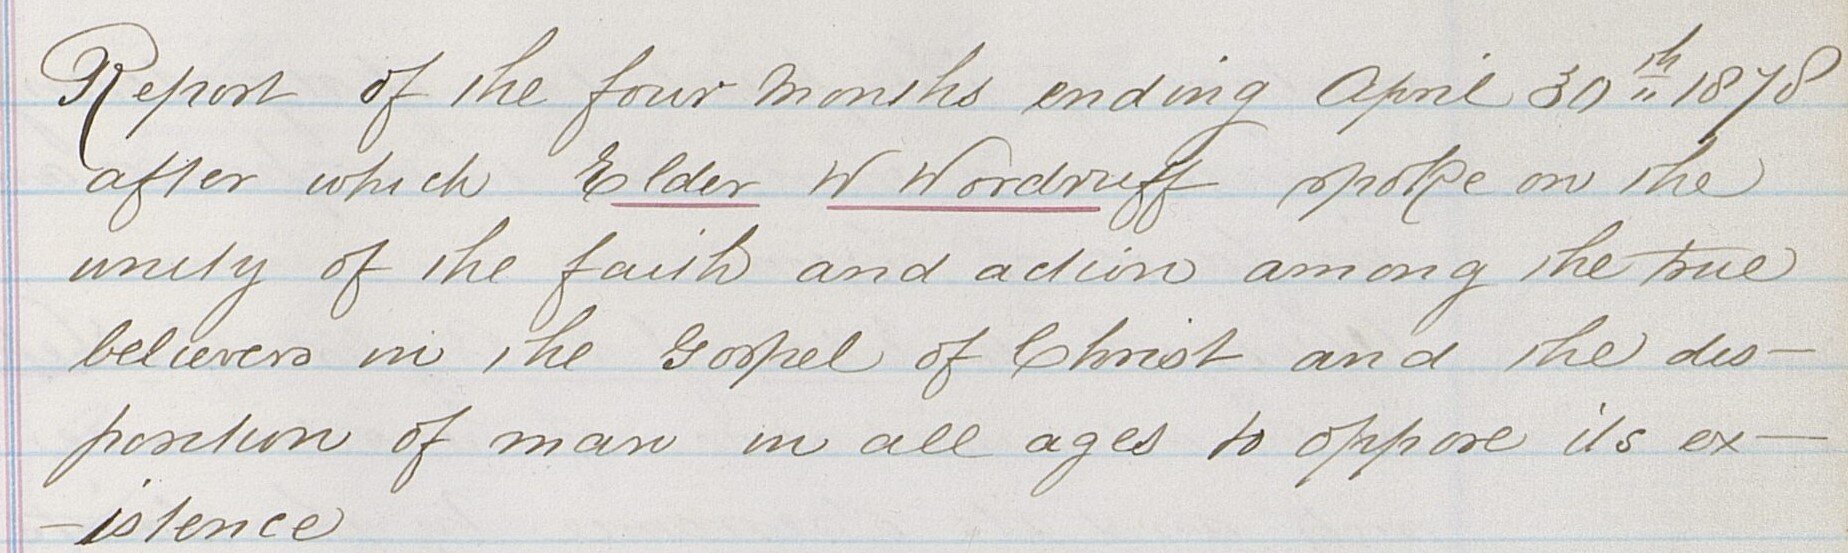 Report of the four Months ending April 30th 1878
after which Elder W Wordruff spoke on the
unity of the faith and action among the true
believers in the Gospel of Christ and the dis-
position of man in all ages to oppose its ex-
-istence